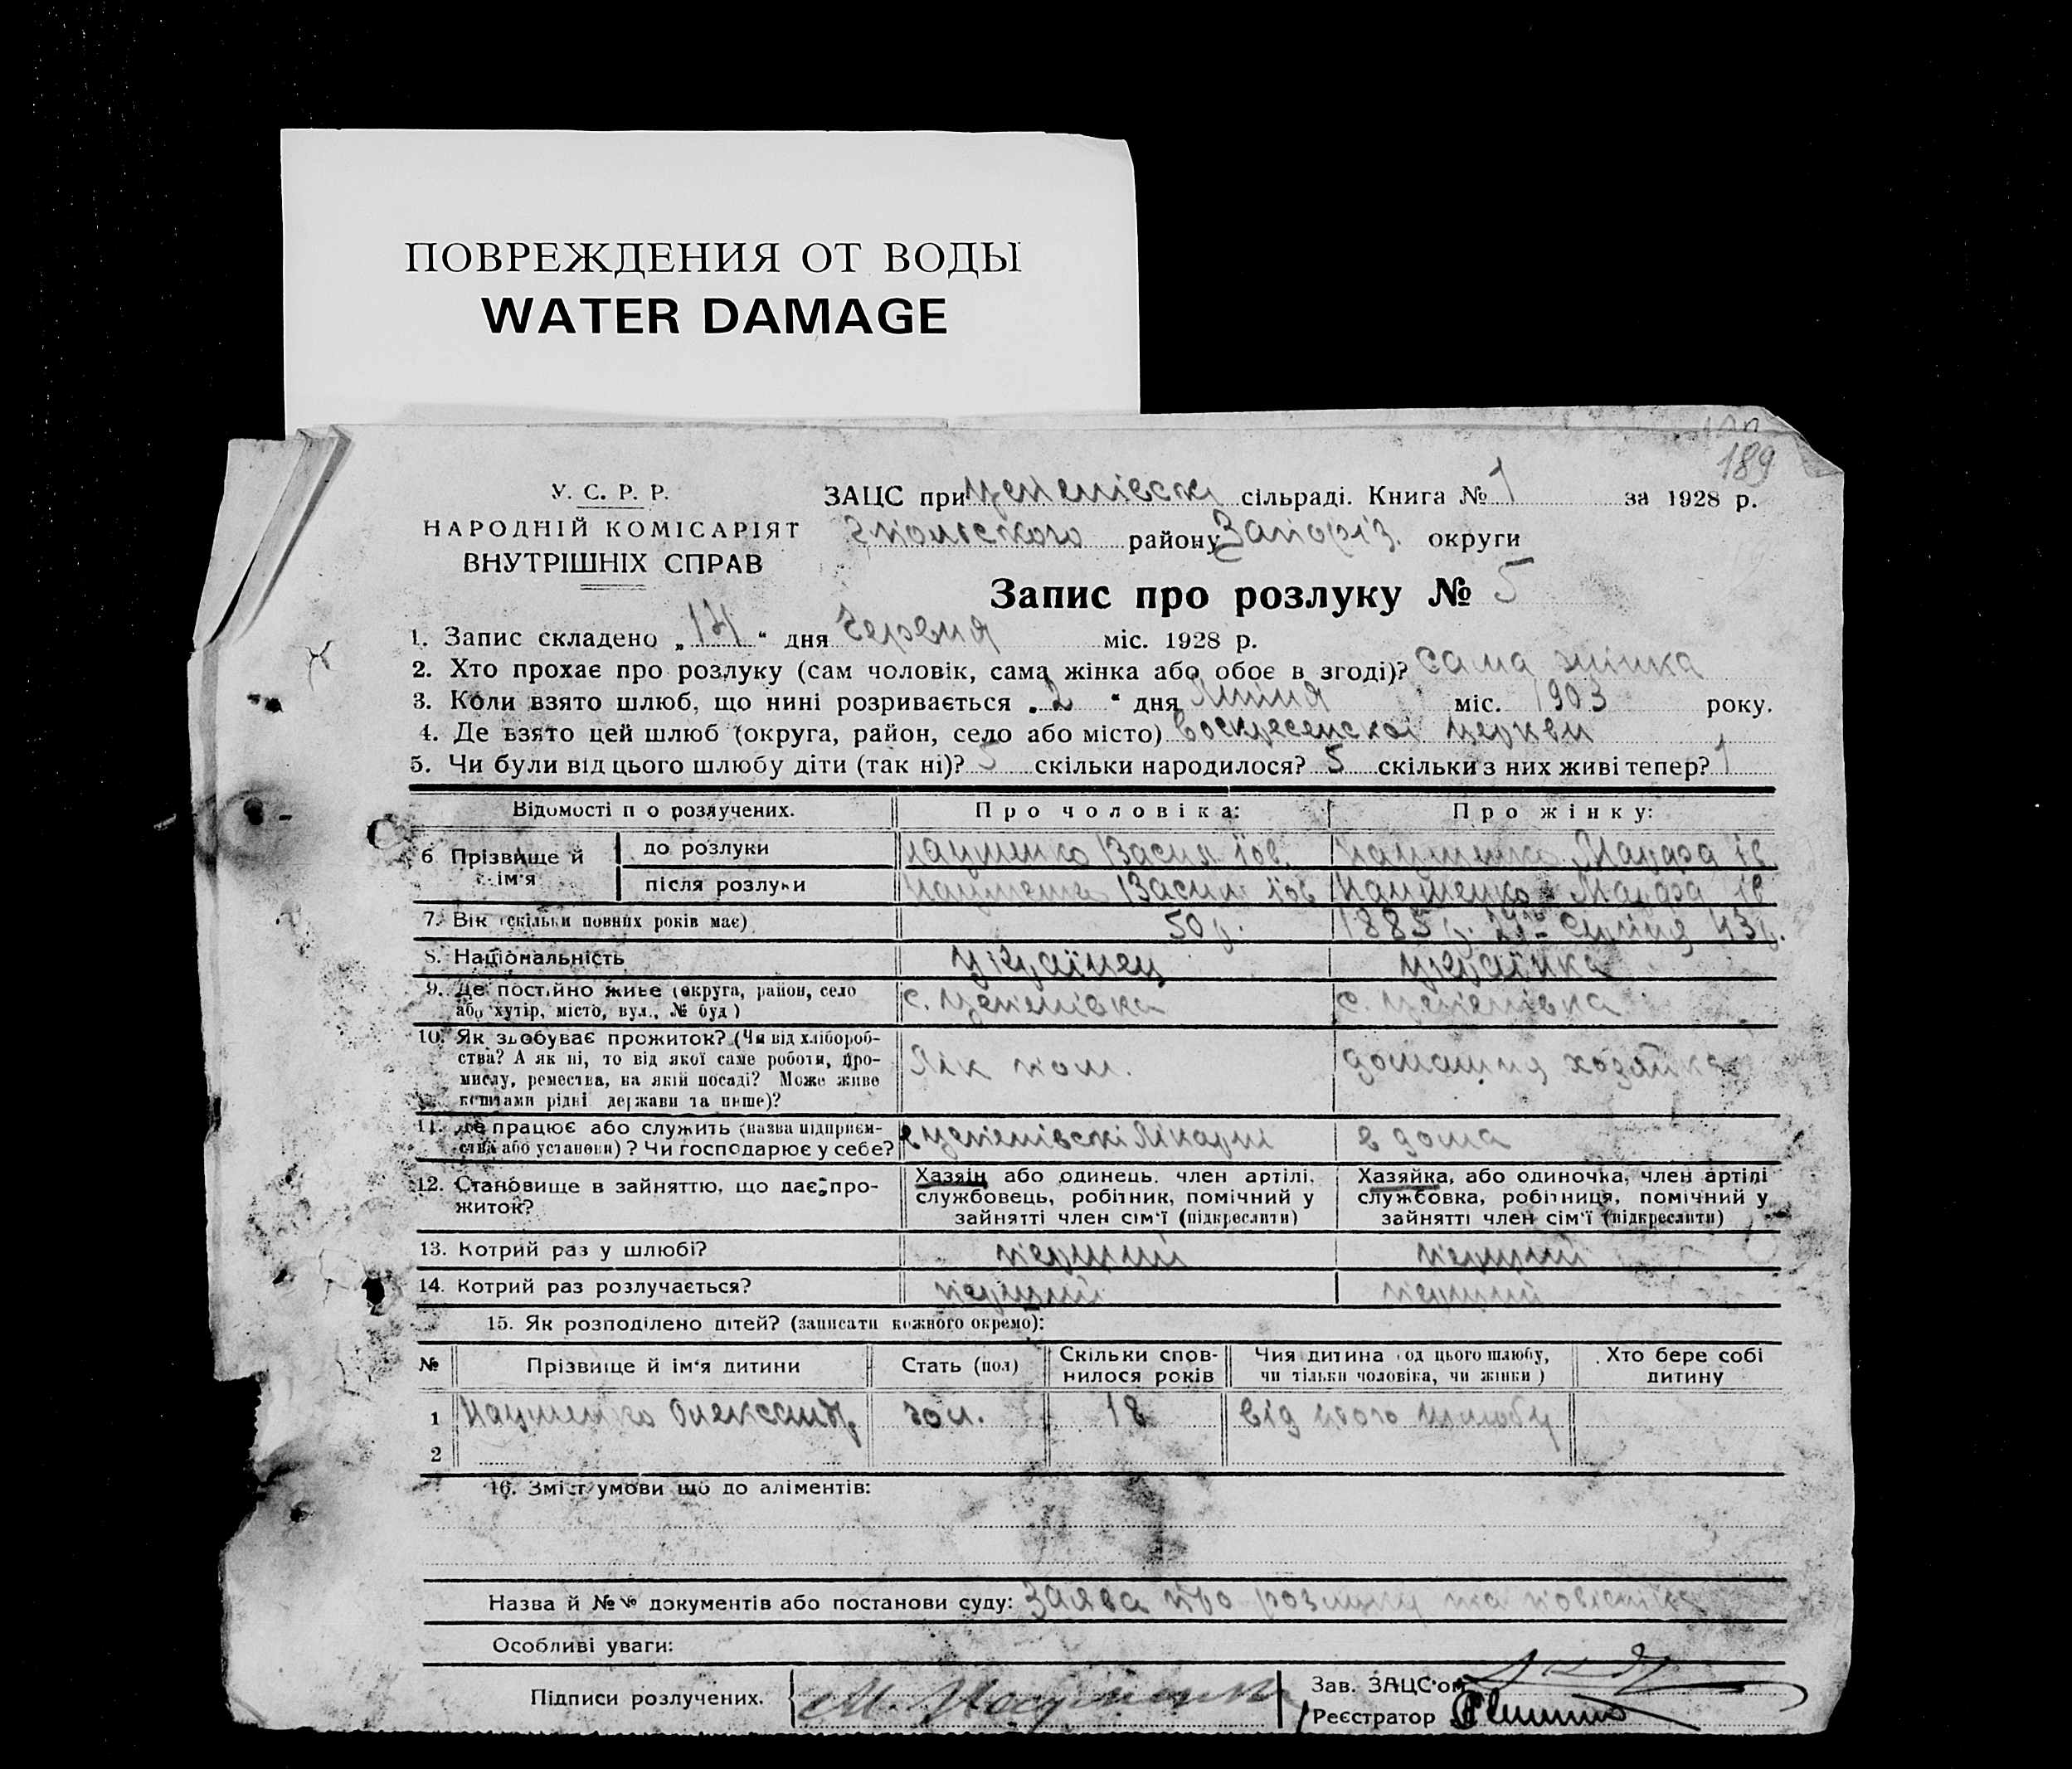 ПОВРЕЖДЕНИЯ ОТ ВОДЫ
WATER DAMAGE
189
У. С. Р. Р.
НАРОДНІЙ КОМІСАРІЯТ
ВНУТРІШНІХ СПРАВ
ЗАЦС при сільраді. Книга № 1 за 1928 р.
району Запоріз. округи
Запис про розлуку № 5
1. Запис складено „14“ дня червня міс. 1928 р.
2. Хто прохає про розлуку (сам чоловік, сама жінка або обоє в згоді)? сама жінка
3. Коли взято шлюб, що нині розривається „2“ дня міс. 1903 року.
4. Де взято цей шлюб (округа, район, село або місто) воскресенскої церкви
5. Чи були від цього шлюбу діти (так ні)? 5 скільки народилося? 5 скільки з них живі тепер? 1
Відомості п о розлучених. Про чоловіка: Про жінку:
6 Прізвище й ім'я до розлуки Науменко Васил Іов. Науменко Ів
після розлуки Науменко Васил Іов Науменко Ів
7. Вік (скільки повних років має) 50 р. 1885 р. Серпня 43 р.
8. Національність українец українка
9. Де постійно живе (округа, район, село або хутір, місто, вул., № буд) с. с.
10. Як здобуває прожиток? (Чи від хліборобства? А як ні, то від якої саме роботи, промислу, ремества, на якій посаді? Може живе коштами рідні держави та инше)? Лік пом. домашня хозяйка
11. Де працює або служить (назва підприємства або установи)? Чи господарює у себе? Лікарні в дома
12. Становище в зайняттю, що дає прожиток? Хазяїн або одинець. член артілі, службовець, робітник, помічний у зайнятті член сім'ї (підкреслити) Хазяйка, або одиночка, член артілі службовка, робітниця, помічний у зайнятті член сім'ї (підкреслити)
13. Котрий раз у шлюбі? перший перший
14. Котрий раз розлучається? перший перший
15. Як розподілено дітей? (записати кожного окремо):
№ Прізвище й ім'я дитини Стать (пол) Скільки сповнилося років Чия дитина (од цього шлюбу, чи тільки чоловіка, чи жінки) Хто бере собі дитину
1 Науменко Олександр чол. 18 від цього шлюбу
2
16. Зміст умови що до аліментів:
Назва й №№ документів або постанови суду: Заява про розлуку та повістка
Особливі уваги:
Підписи розлучених. М. Науменко Зав. ЗАЦС'ом
Реєстратор